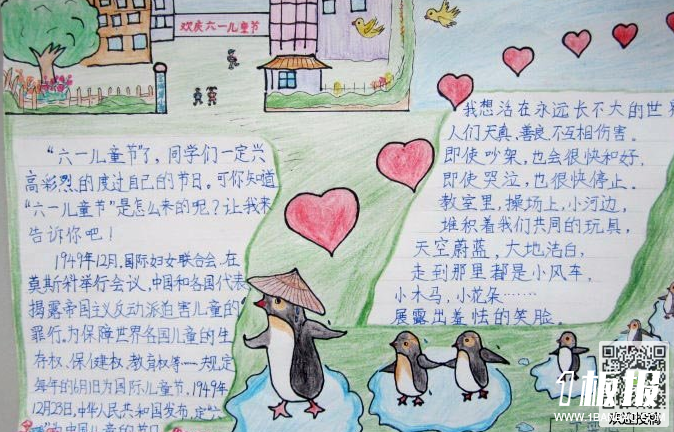 欢庆六一儿童节
"六一儿童节"了，同学们一定兴
高彩烈的度过自己的节日。可你知道
"六一儿童节"是怎么来的呢？让我来
告诉你吧！
1949年12月，国际妇女联合会在
莫斯科举行会议，中国和各国代表
揭露帝国主义反动派迫害儿童的
罪行。为保障世界各国儿童的生
存权、保健权、教育权等一规定
每年的6月1日为国际儿童节，1949年
12月23日，中华人民共和国发布，定"六
为中国儿童的节日
我想活在永远长不大的世界
人们天真、善良、不互相伤害。
即使吵架，也会很快和好.
即使哭泣，也很快停止.
教室里，操场上，小河边，
堆积着我们共同的玩具，
天空蔚蓝，大地洁白，
走到那里都是小风车，
小木马，小花朵……
展露出羞怯的笑脸。
板报
WWW.1BANBAO.COM
欢迎投稿